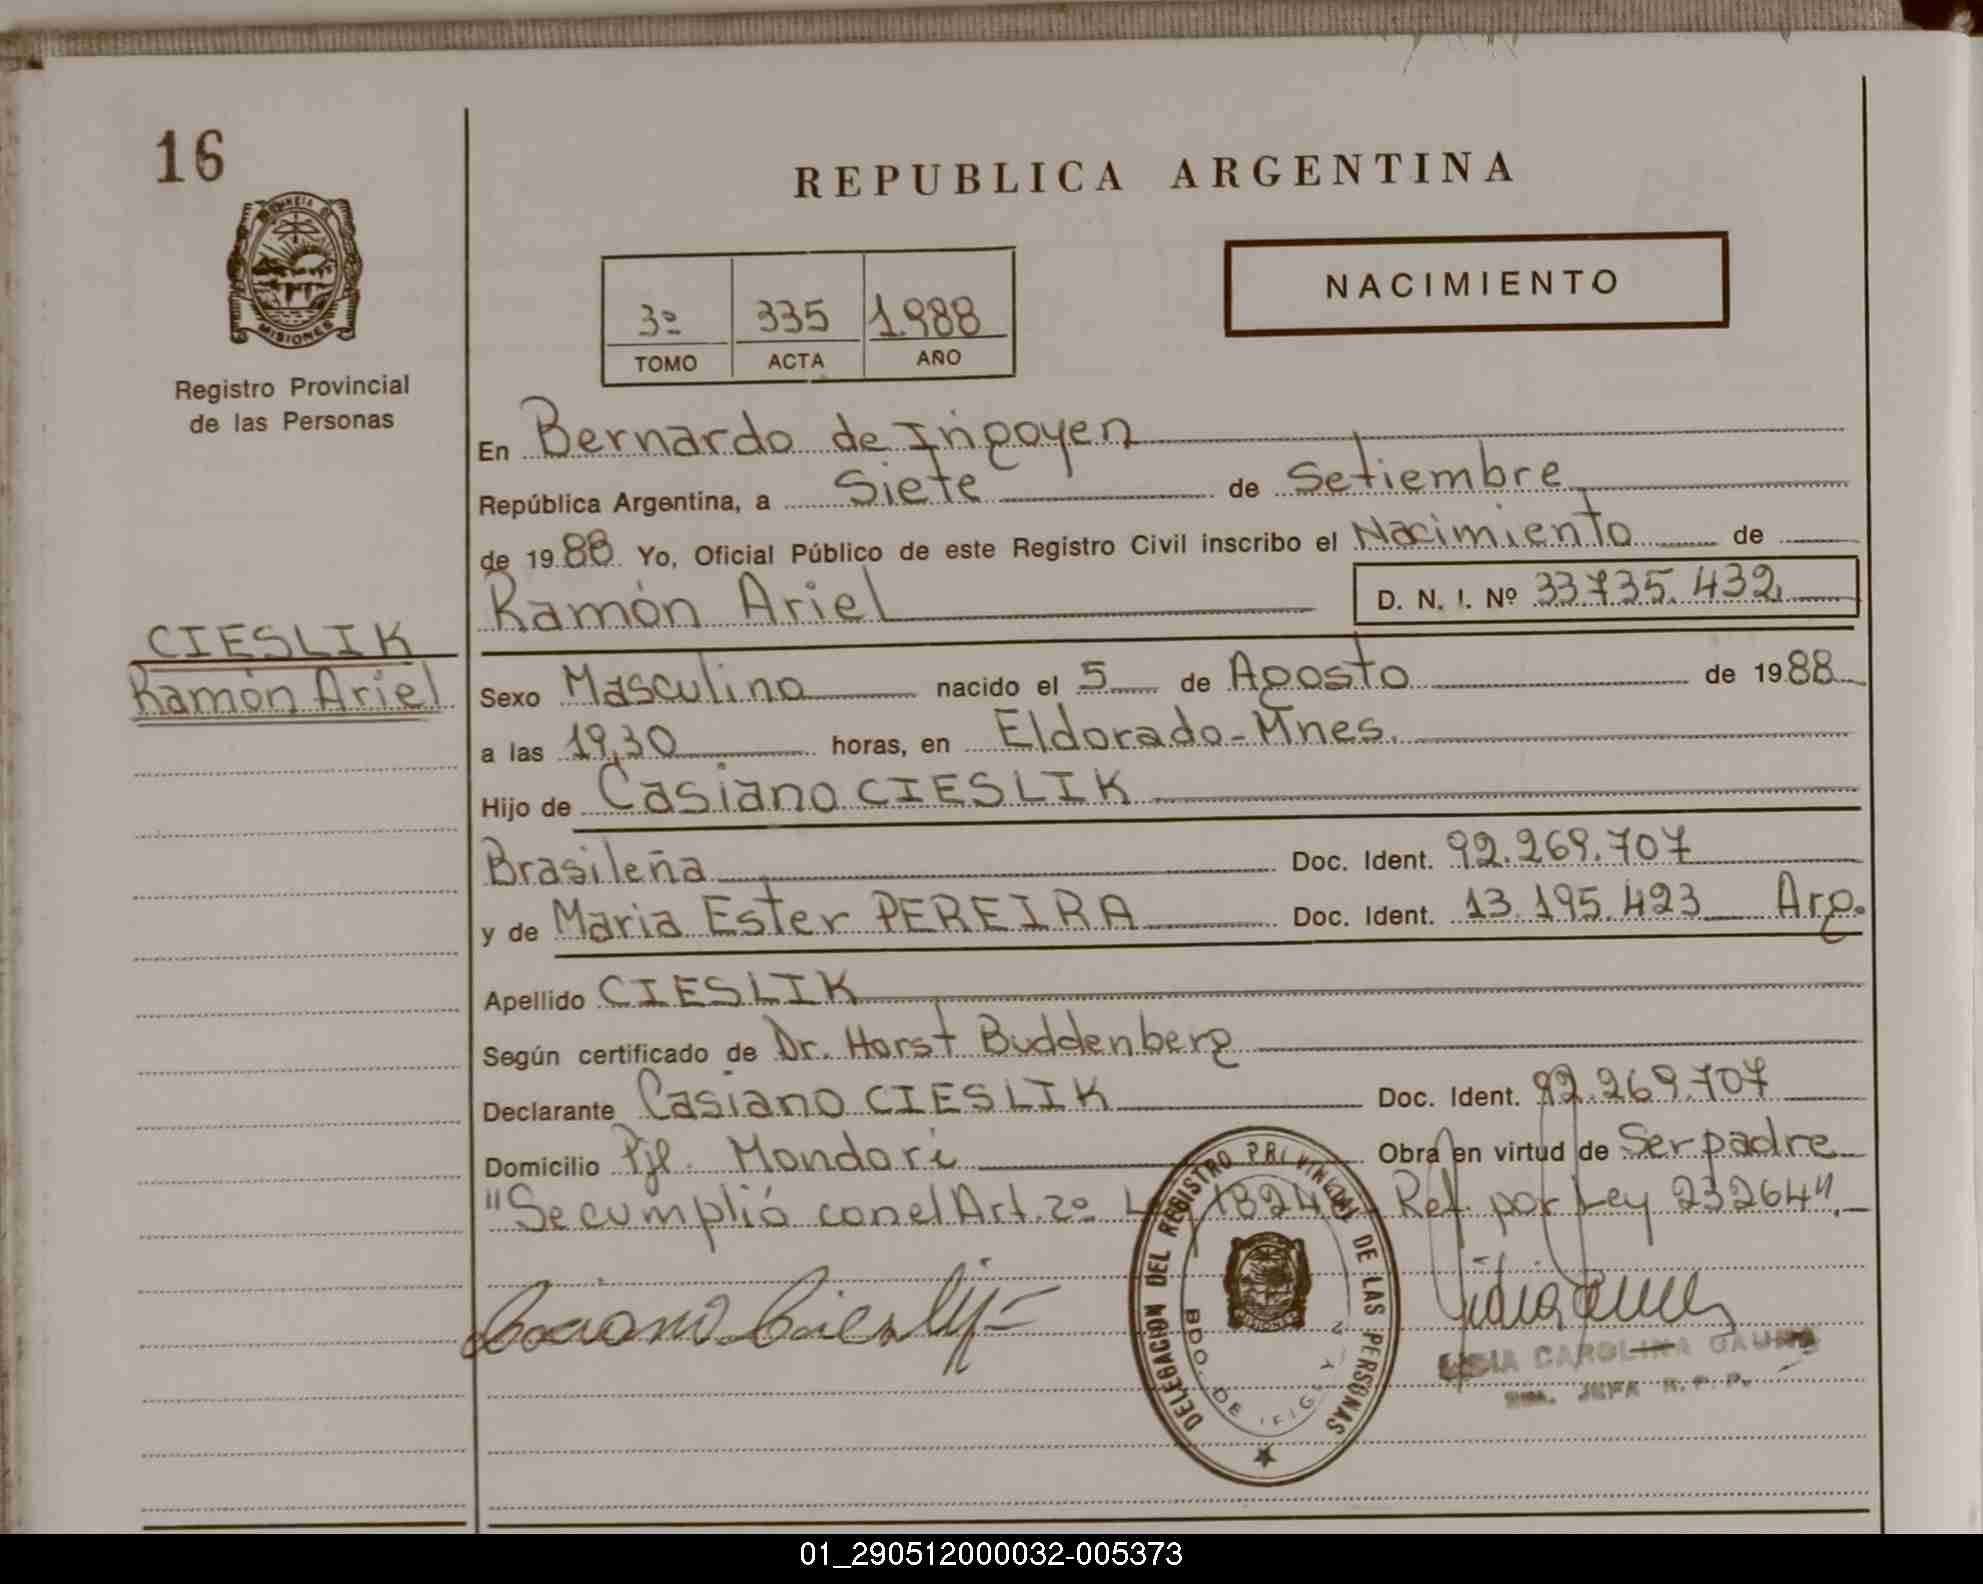 16
REPUBLICA ARGENTINA
PROVINCIA DE
MISIONES
NACIMIENTO
3º 335 1.988
TOMO ACTA AÑO
Registro Provincial
de las Personas
En Bernardo de Irigoyen
República Argentina, a Siete de Setiembre
de 1988 Yo, Oficial Público de este Registro Civil inscribo el Nacimiento de
Ramón Ariel D. N. I. Nº 33735.432
CIESLIK
Ramón Ariel
Sexo Masculino nacido el 5 de Agosto de 1988
a las 19,30 horas, en Eldorado-Mnes.
Hijo de Casiano CIESLIK
Brasileña Doc. Ident. 92.269.707
y de Maria Ester PEREIRA Doc. Ident. 13.195.423 Arg.
Apellido CIESLIK
Según certificado de Dr. Horst Buddenberg
Declarante Casiano CIESLIK Doc. Ident. 92.269.707
Domicilio Pje. Mondori Obra en virtud de Ser padre
"Se cumplió con el Art. 2º 18248 Ref. por Ley 23264".
DELEGACION DEL REGISTRO PROVINCIAL DE LAS PERSONAS
BDO. DE
LIDIA CAROLINA GAUNA
JEFA R. P. P.
01_290512000032-005373